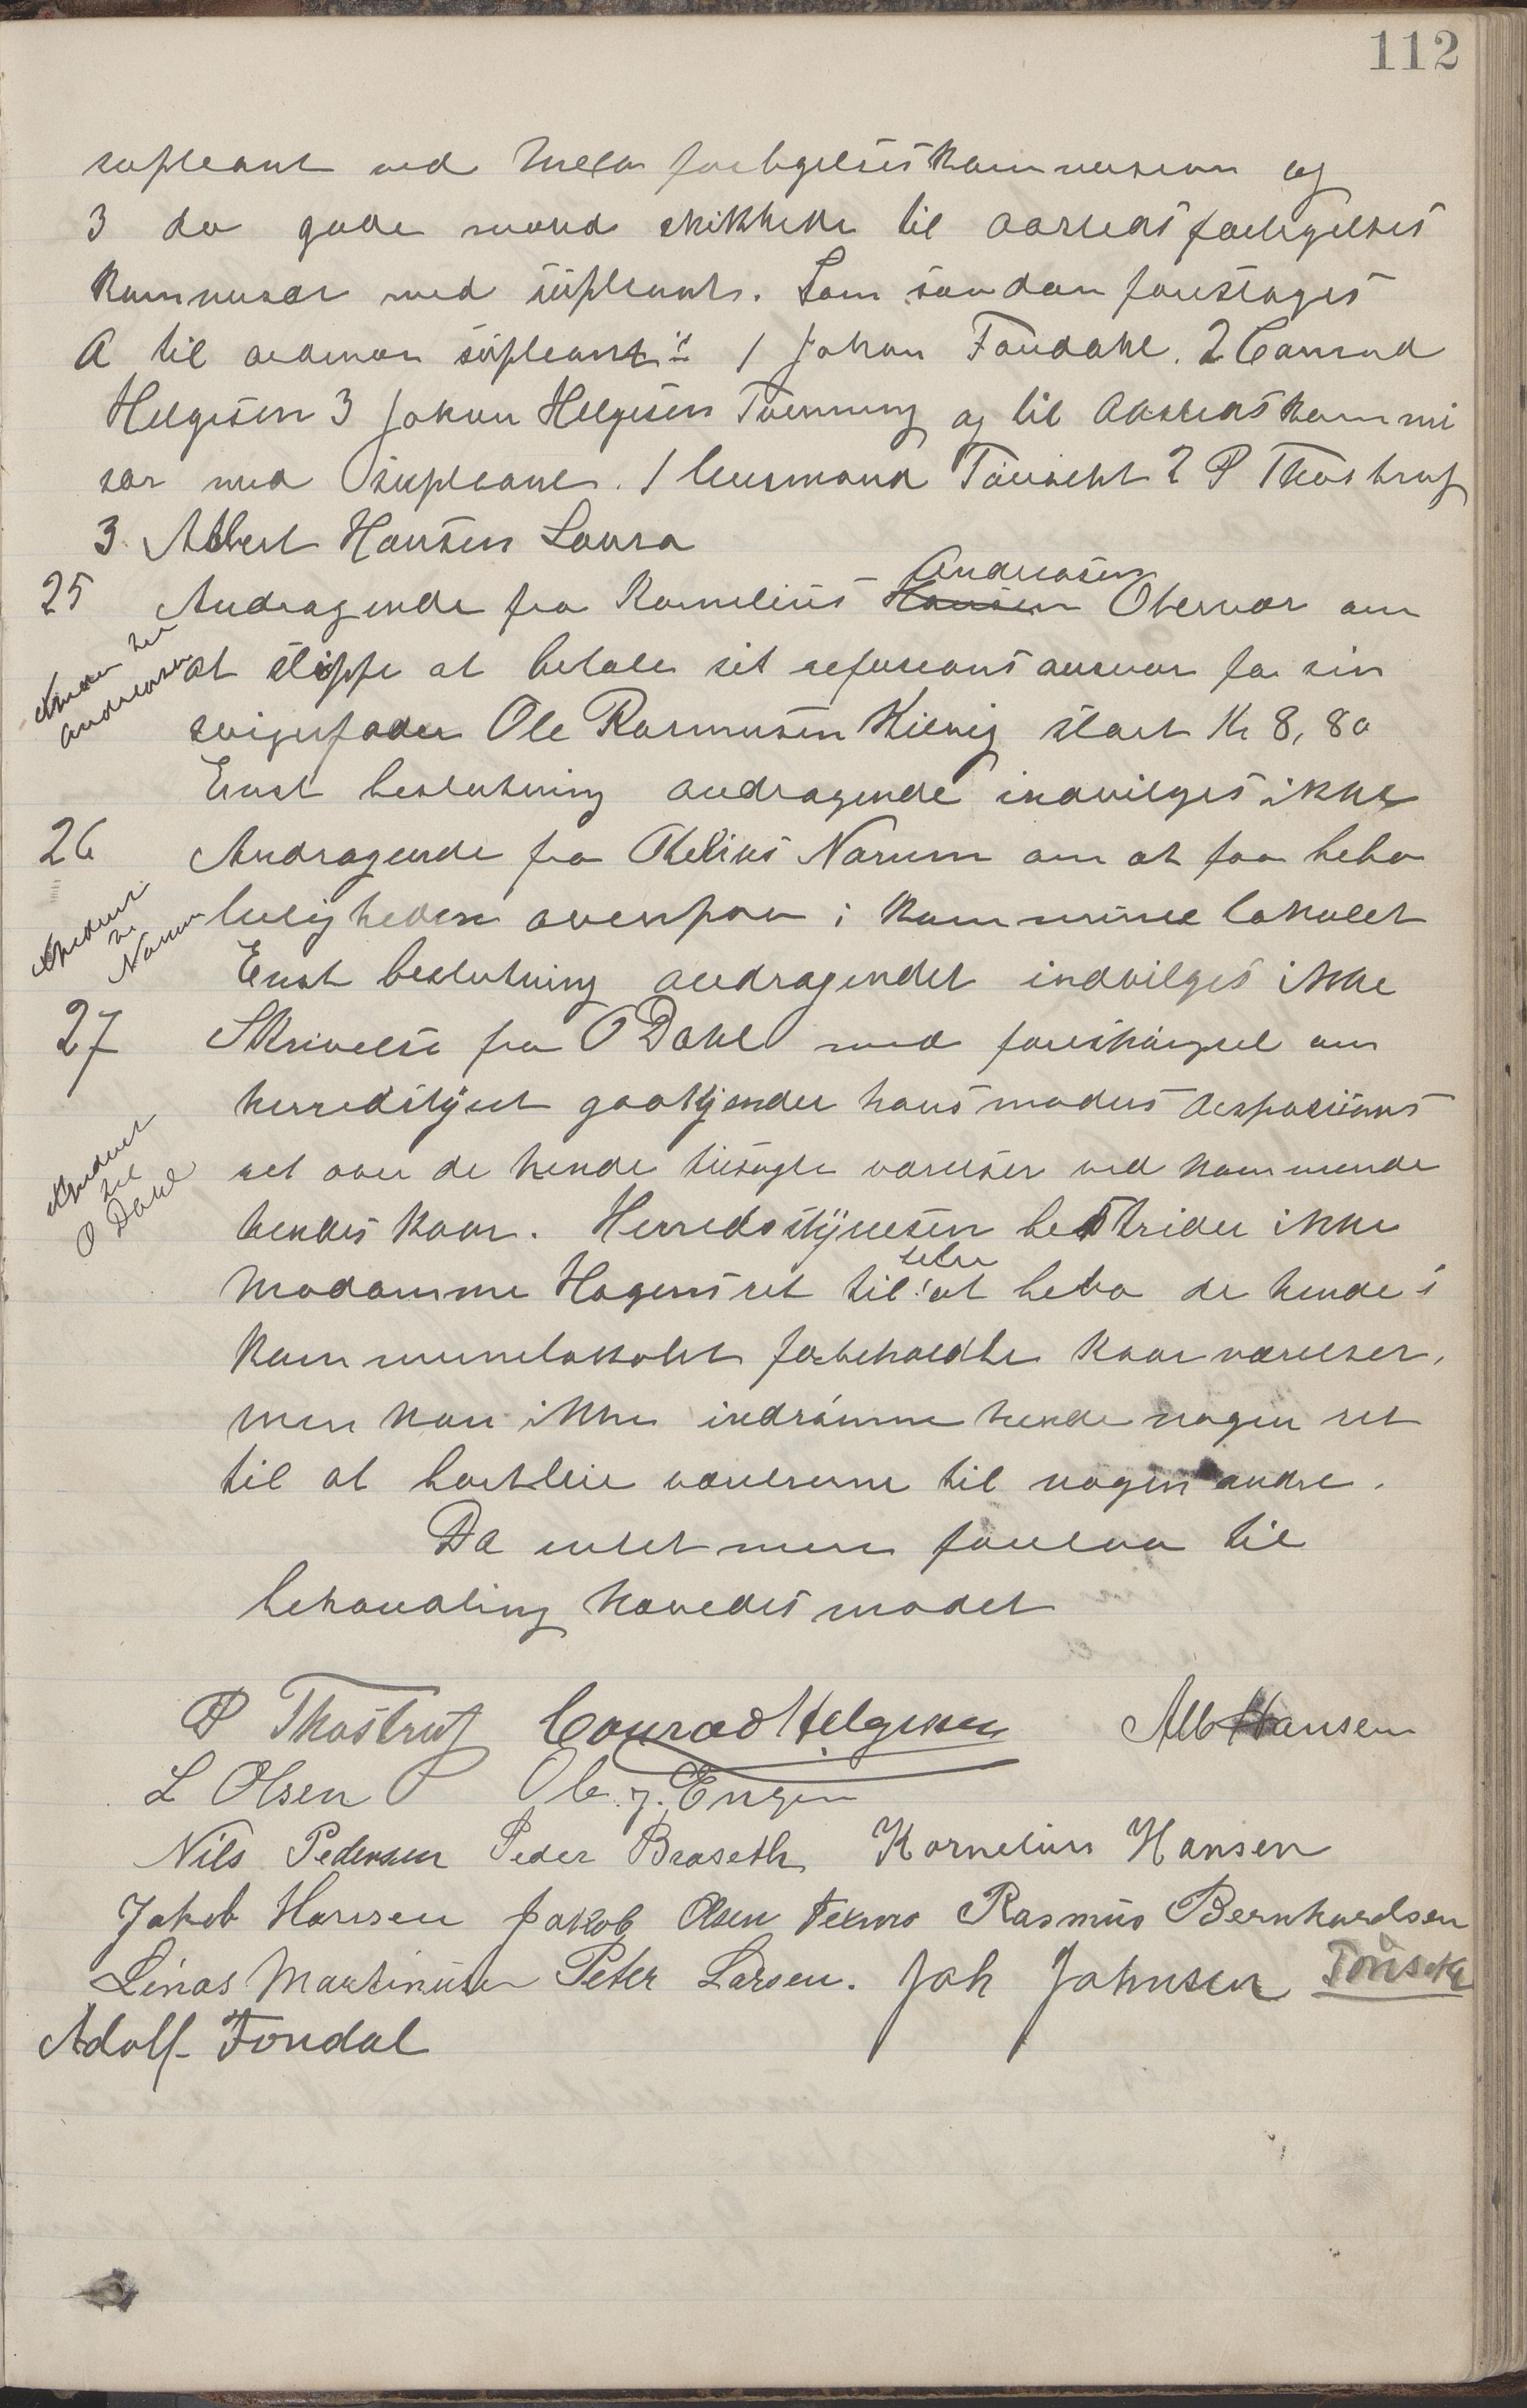 112
supleant ved mella forligelseskommissionen og
3 do gode mænd skikkede til aastedsforligelses
kommisær med supleanter. Som saadan foreslages
A til ordinær supleant: 1 Johan Fondahl. 2 Conrad
Helgesen 3 Johan Helgesen Tverning og til Aastedskommi
sær med supleant. 1 Lensmand Tønseth 2 P Thostrup
3 Albert Hansen Laura
25 Andragende fra Kornelius Hansen Andreasen Otervær om
at slippe at betale sit refusions ansvar for sin
svigerfader Ole Rasmusen Kilvig stort Kr 8,80
Enst beslutning andragende indvilges ikke
Andreasen
26 Andragende fra Thelius Narum om at faa bebo
leiligheden ovenpaa i kommune lokalet
Enst beslutning andragendet indvilges ikke
Anderet til Narum
27 Skrivelse fra O Dahl med forespørgsel om
herredstyret godkjender hans moders desposisions
ret over de hende tilsagte værelser ved kommende
hendes kaar. Herredsstyrelsen bestrider ikke
Anderet til O Dahl
Madamme Hagens ret til selv at bebo de hende i
kommunelokalet forbeholdte kaarværelser,
men kan ikke indrømme hende nogen ret
til at bortleie værelserne til nogen andre.
Da intet mere forelaa til
behandling hævedes mødet
P Thostrup Conrad Helgesen Alb Hansen
L Olsen Ole J. Engen
Nils Pedersen Peder Braseth Kornelius Hansen
Jakob Hansen Jakob Olsen Texmo Rasmus Bernhardsen
Linas Martinusen Peter Larsen. Joh Johnsen Tønseth
Adolf Fondal